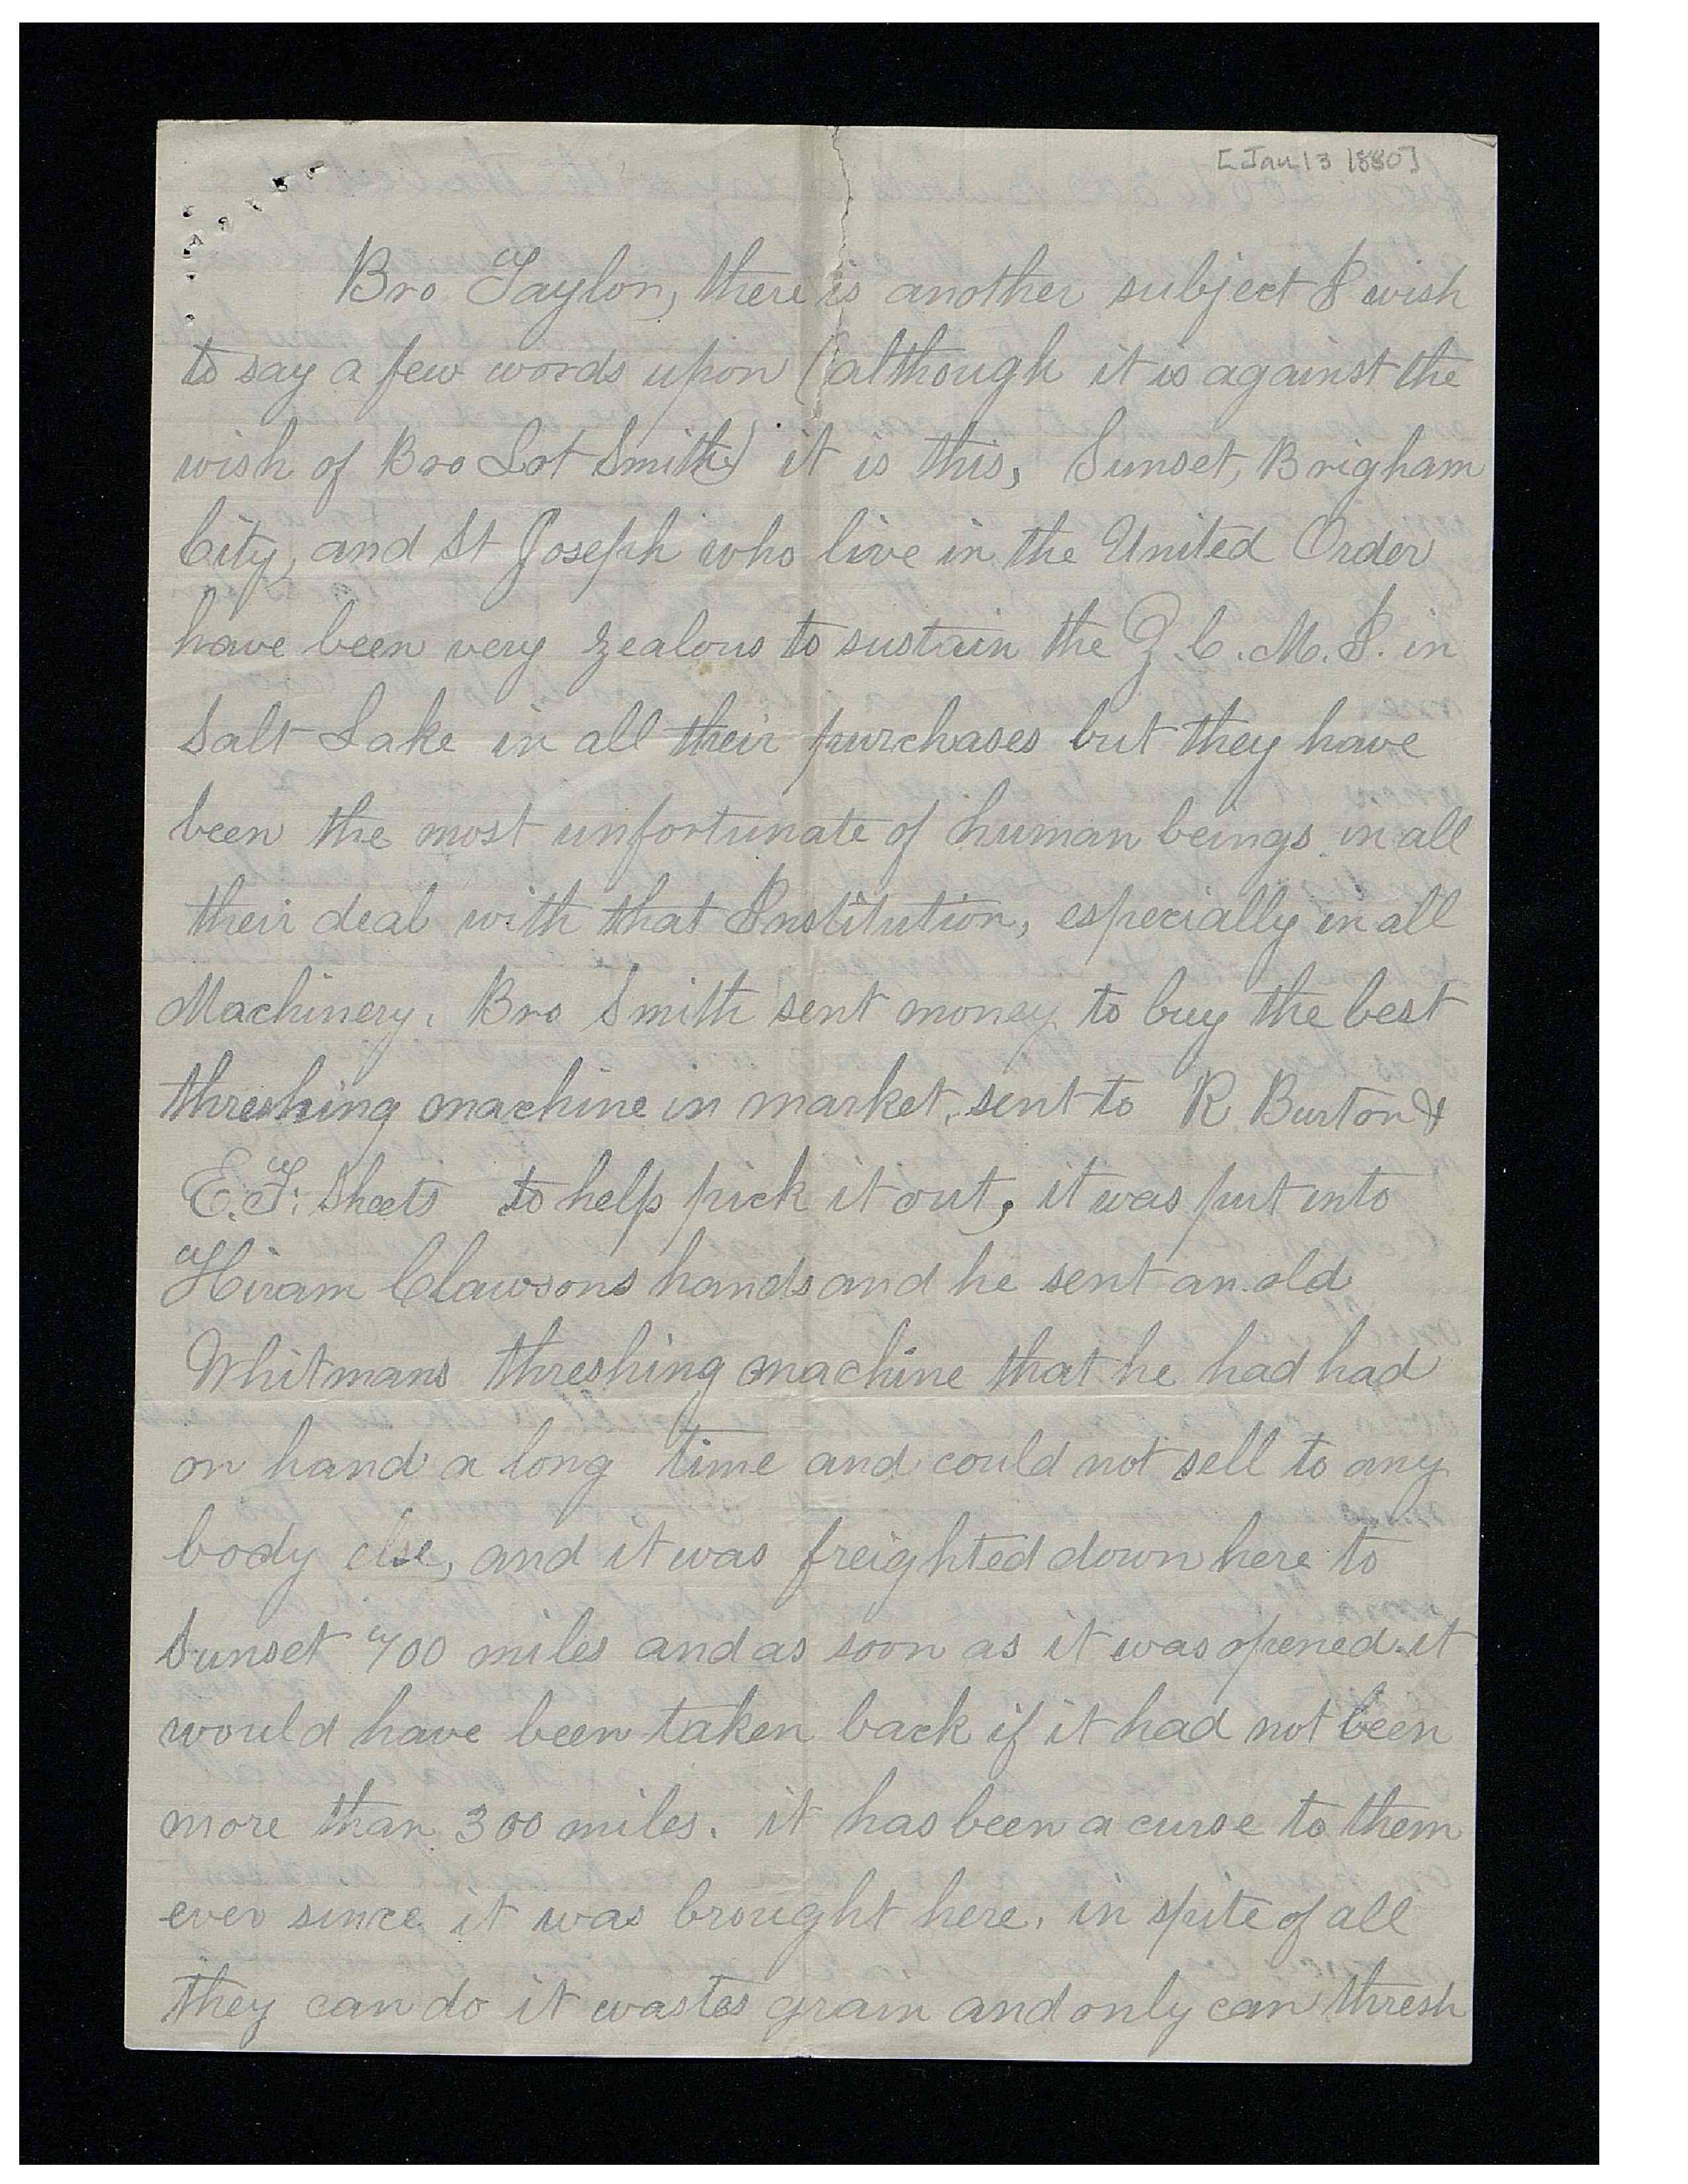 [Jan 13 1880]
Bro Taylor, there is another subject I wish
to say a few words upon (although it is against the
wish of Bro Lot Smith) it is this, Sunset, Brigham
City, and St Joseph who live in the United Order
have been very zealous to sustain the Z.C.M.I. in
Salt Lake in all their purchases but they have
been the most unfortunate of human beings in all
their deal with that Institution, especially in all
Machinery. Bro Smith sent money to buy the best
threshing machine in market, sent to R Burton &
E.F. Sheets to help pick it out, it was put into
Hiram Clawsons hands and he sent an old
Whitmans threshing machine that he had had
on hand a long time and could not sell to any
body else, and it was freighted down here to
Sunset 700 miles and as soon as it was opened it
would have been taken back if it had not been
more than 300 miles. it has been a curse to them
ever since it was brought here. in spite of all
they can do it wastes grain and only can thresh